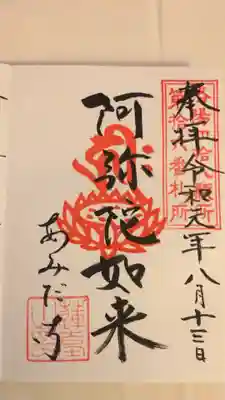 奉拝 令和元年 八月十三日
阿弥陀如来
あみだ寺
蓮臺山